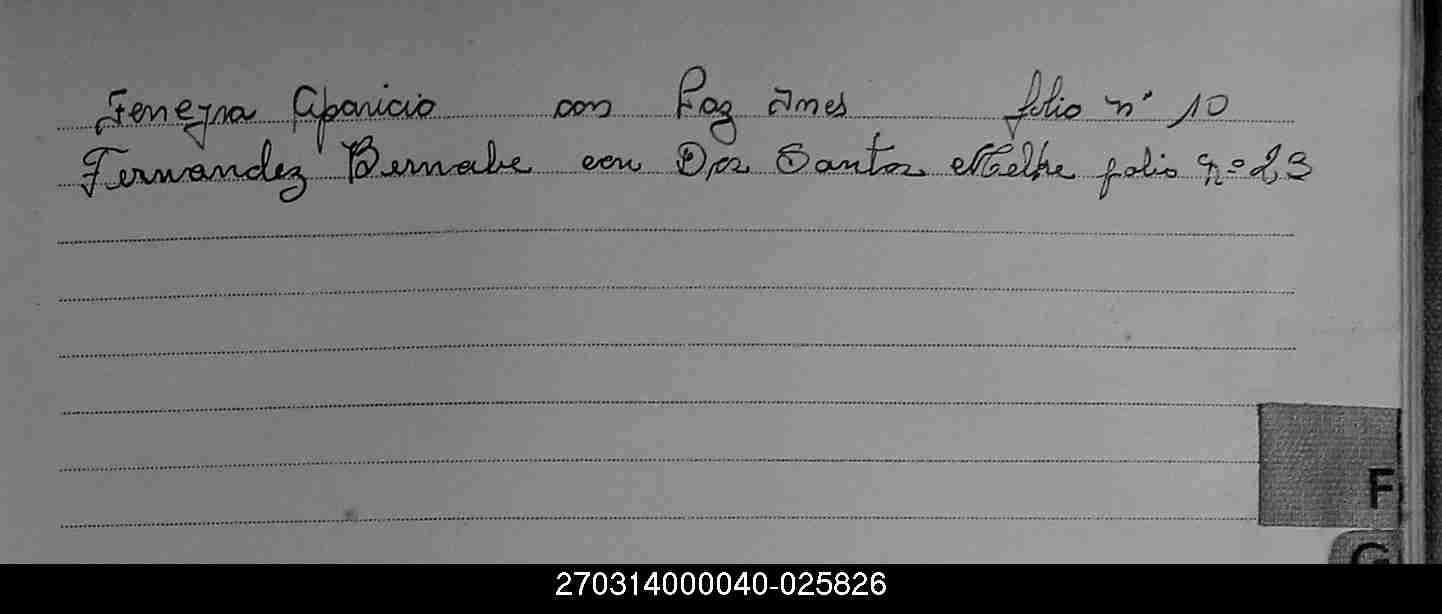 Ferreyra Aparicio con Paz Ines folio n° 10
Fernandez Bernabe con Dos Santos folio n=23
F
G
270314000040-025826